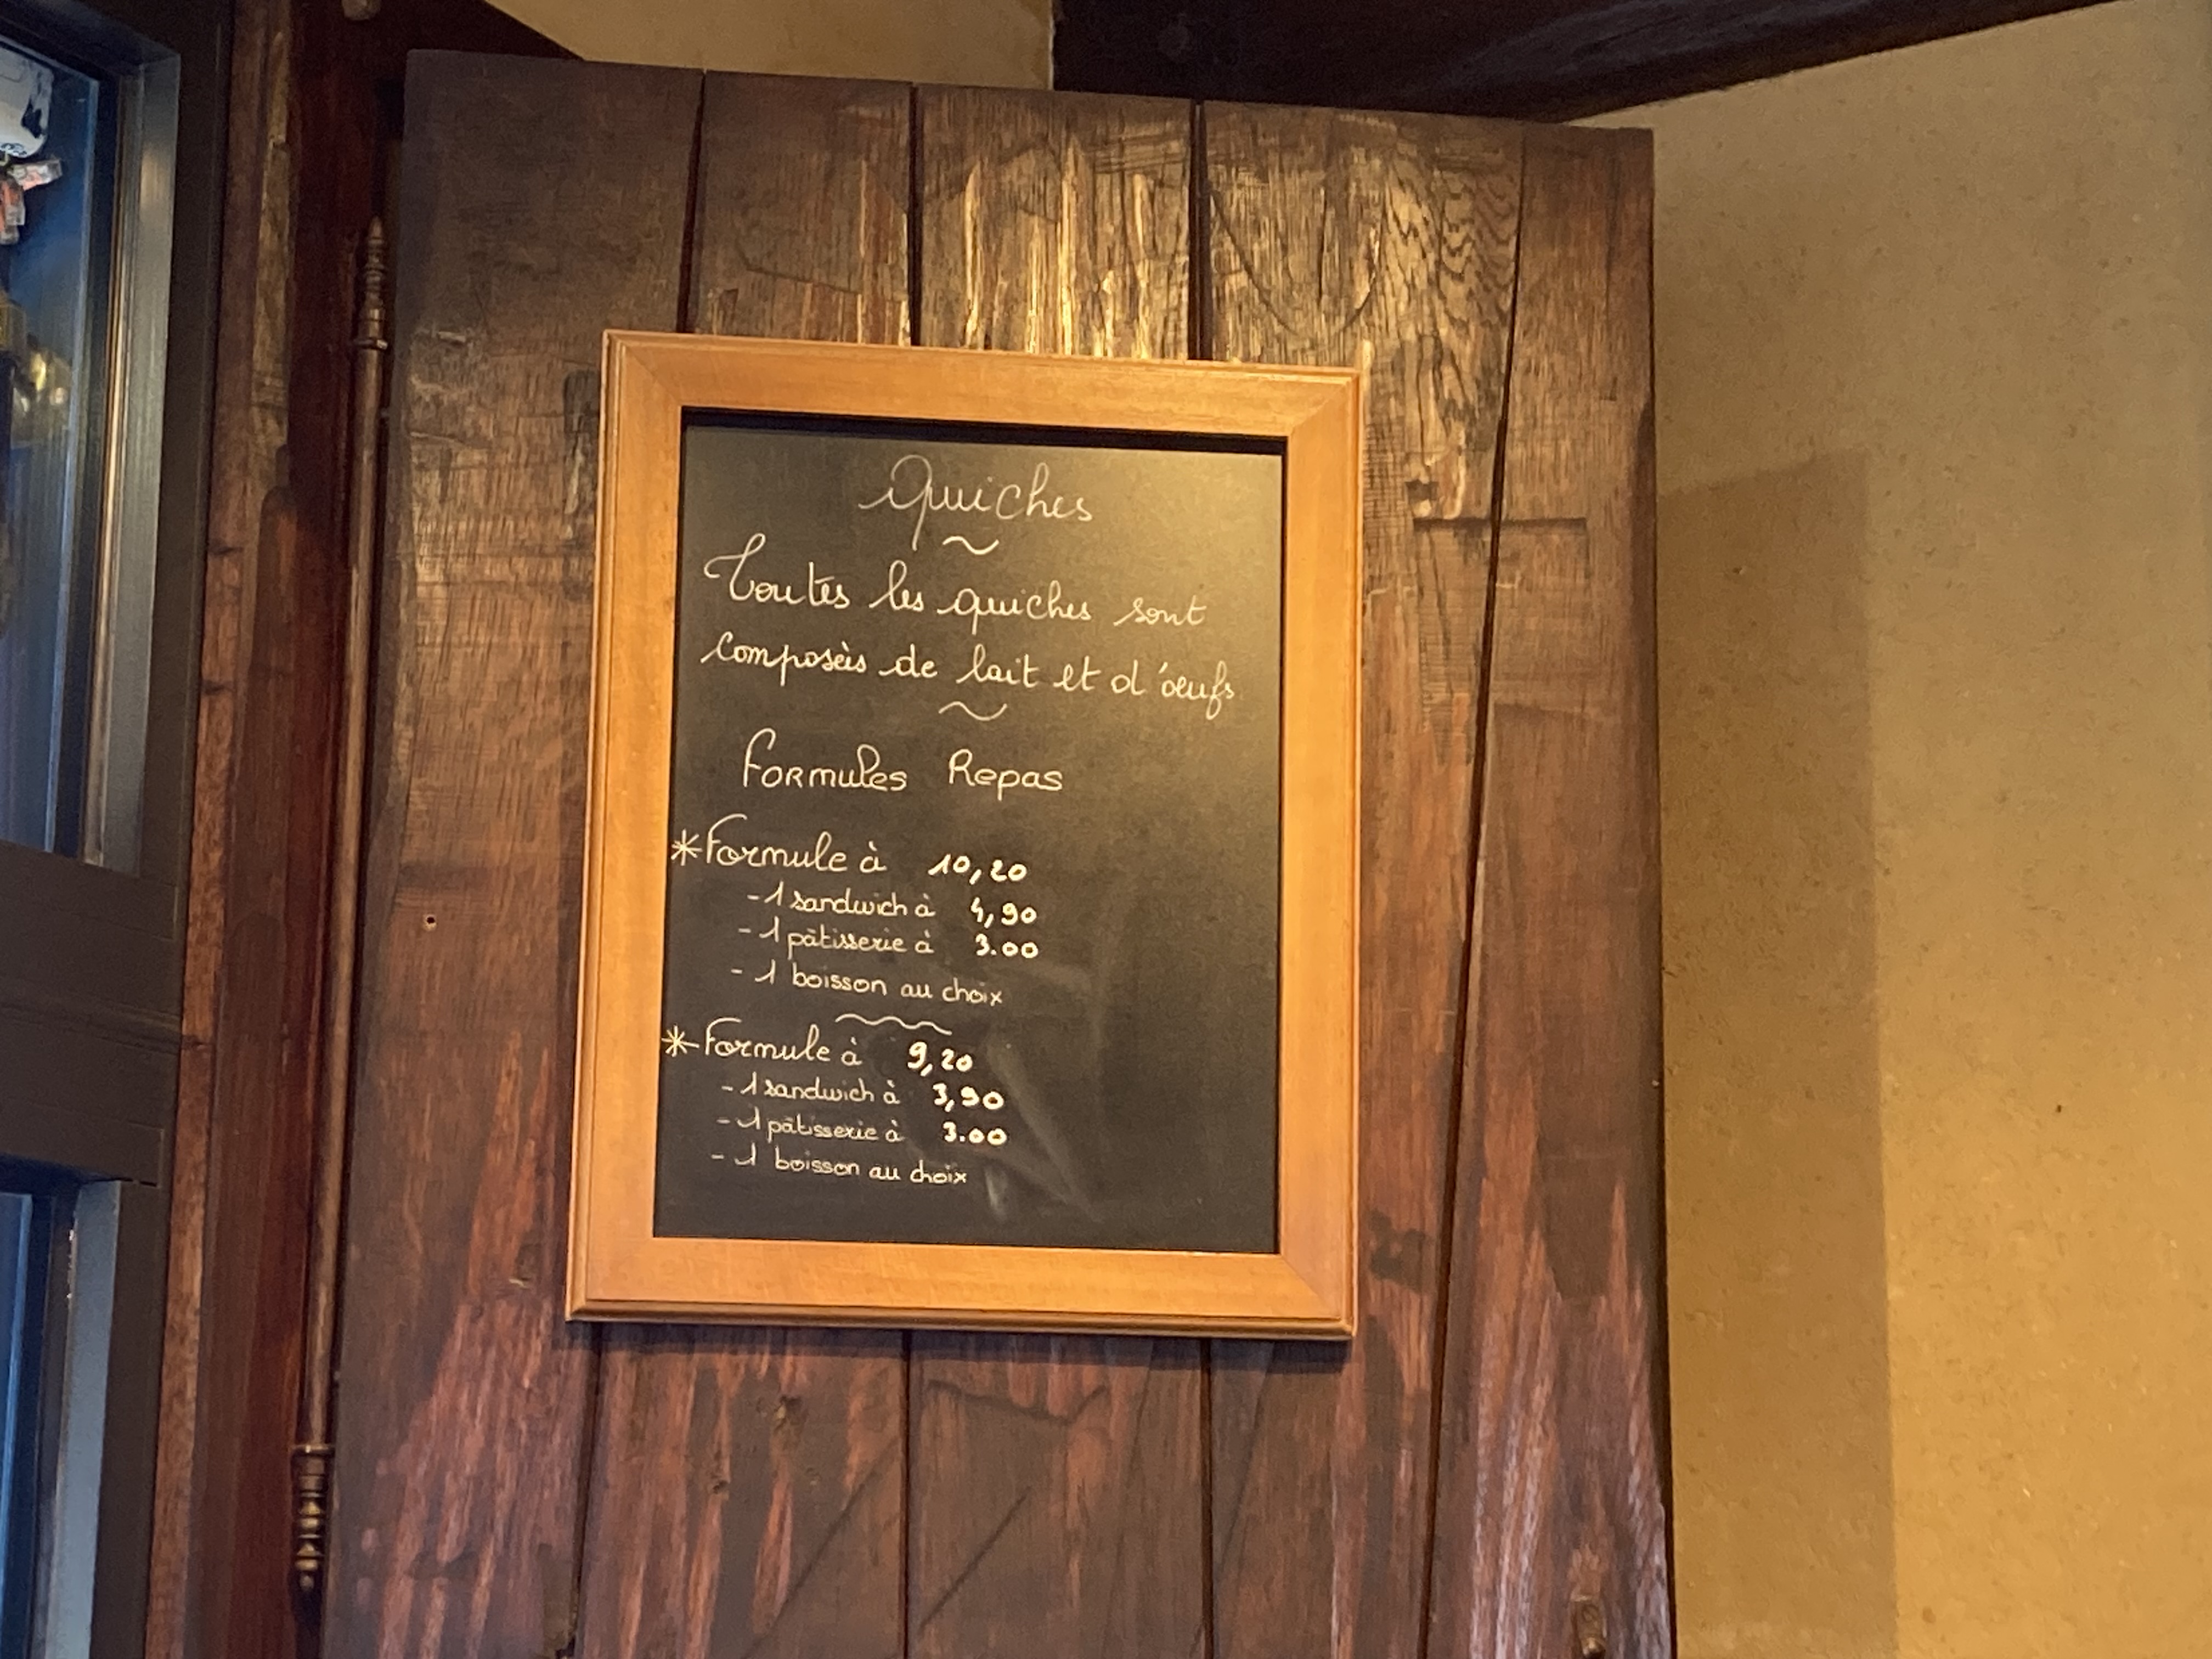 Quiches
~
Toutes les quiches sont
composées de lait et d'œufs
~
Formules Repas
* Formule à 10,20
- 1 sandwich à 4,90
- 1 pâtisserie à 3.00
- 1 boisson au choix
* Formule à 9,20
- 1 sandwich à 3,90
- 1 pâtisserie à 3.00
- 1 boisson au choix